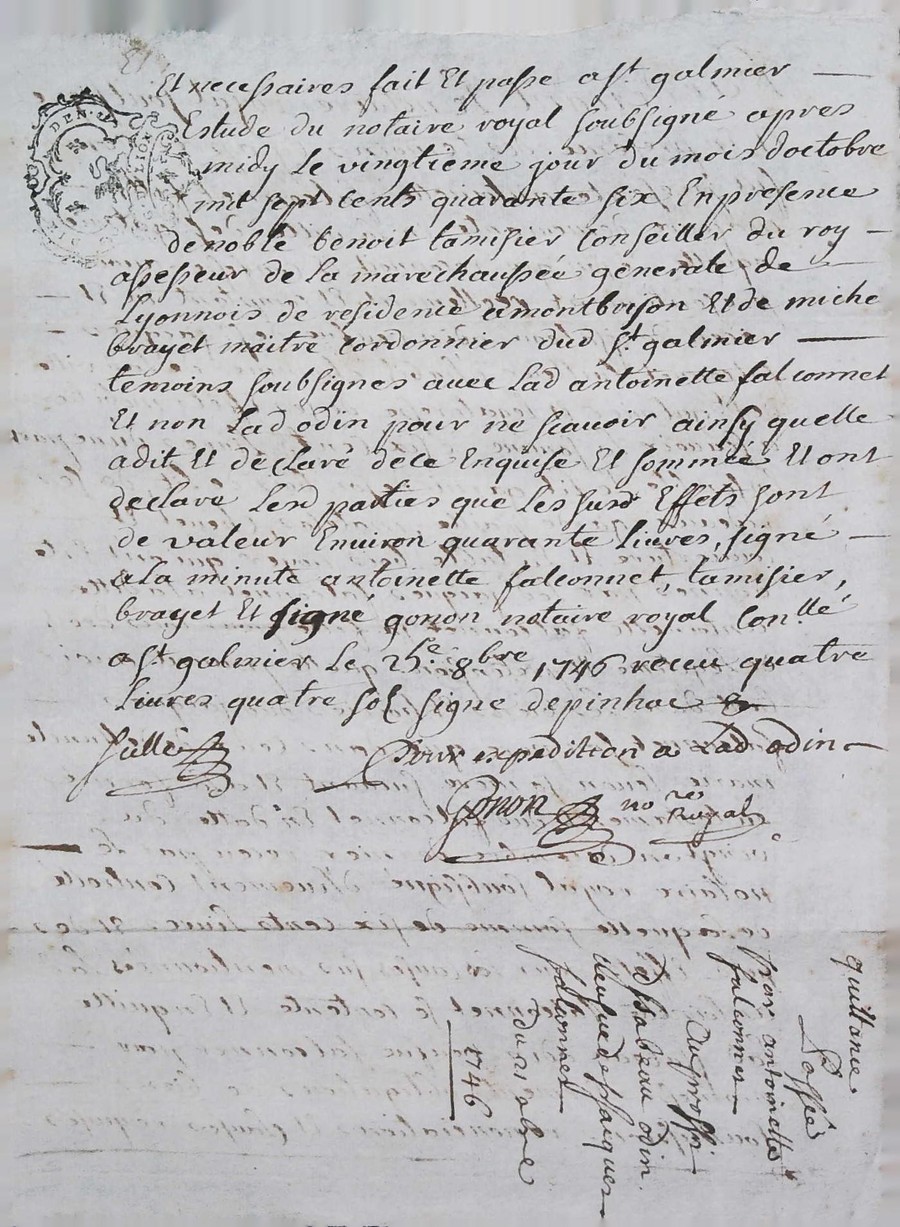 Et necessaires fait Et passe a St galmier
Estude du notaire royal soubsigné apres
midy le vingtieme jour du mois doctobre
mil sept cents quarante six En presence
de noble benoit tamisier Conseiller du roy
assesseur de la marechaussée generale de
Lyonnois de residence a montbrison Et de miche
brayet maitre Cordonnier dud St galmier
temoins soubsignes avec Lad antoinette falconnet
Et non Lad odin pour ne scavoir ainsy quelle
a dit Et declaré de ce Enquise Et sommée Et ont
declaré Lesd parties que les susd Effets sont
de valeur Environ quarante livres, signé
a la minute antoinette falconnet, tamisier,
brayet Et signé gonon notaire royal Conllé
a St galmier le 8bre 1746 receu quatre
livres quatre sol signe depinhac
Pour expedition a Lad odin
Gonon nore Royal
DEN
LION
quittance
Passée
par antoinette
falconnet
au proffit
dysabeau odin
veufve de jacques
falconnet
du 8bre
1746